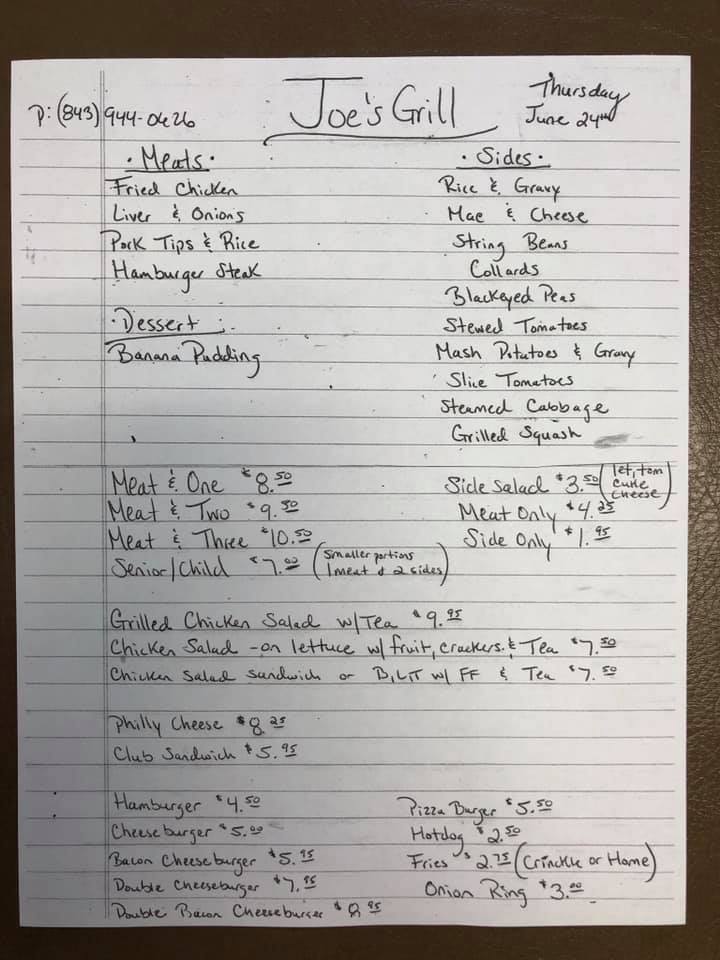 Joe's Grill
Thursday
June 24th
P: (843) 944-0426
· Meats ·
Fried Chicken
Liver & Onions
Pork Tips & Rice
Hamburger Steak
· Dessert :
Banana Pudding
· Sides ·
Rice & Gravy
Mac & Cheese
String Beans
Collards
Blackeyed Peas
Stewed Tomatoes
Mash Potatoes & Gravy
Slice Tomatoes
Steamed Cabbage
Grilled Squash
Meat & One $8.50
Meat & Two $9.50
Meat & Three $10.50
Senior/Child $7.00 (Smaller portions
1 meat & 2 sides)
Side Salad $3.50 (let, tom
cuke
cheese)
Meat Only $4.25
Side Only $1.95
Grilled Chicken Salad w/Tea $9.95
Chicken Salad - on lettuce w/ fruit, crackers & Tea $7.50
Chicken Salad sandwich or B,L,T w/ FF & Tea $7.50
Philly Cheese $8.25
Club Sandwich $5.95
Hamburger $4.50
Cheeseburger $5.00
Bacon Cheeseburger $5.95
Double Cheeseburger $7.95
Double Bacon Cheeseburger $8.95
Pizza Burger $5.50
Hotdog $2.50
Fries $2.75 (Crinckle or Home)
Onion Ring $3.00